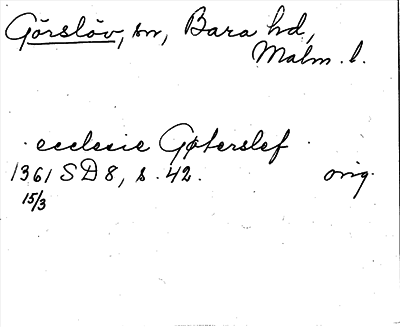 Görslöv, sn, Bara hd,
Malm. l.
ecclesie Gøterslef
1361 SD 8, s. 42. orig.
15/3